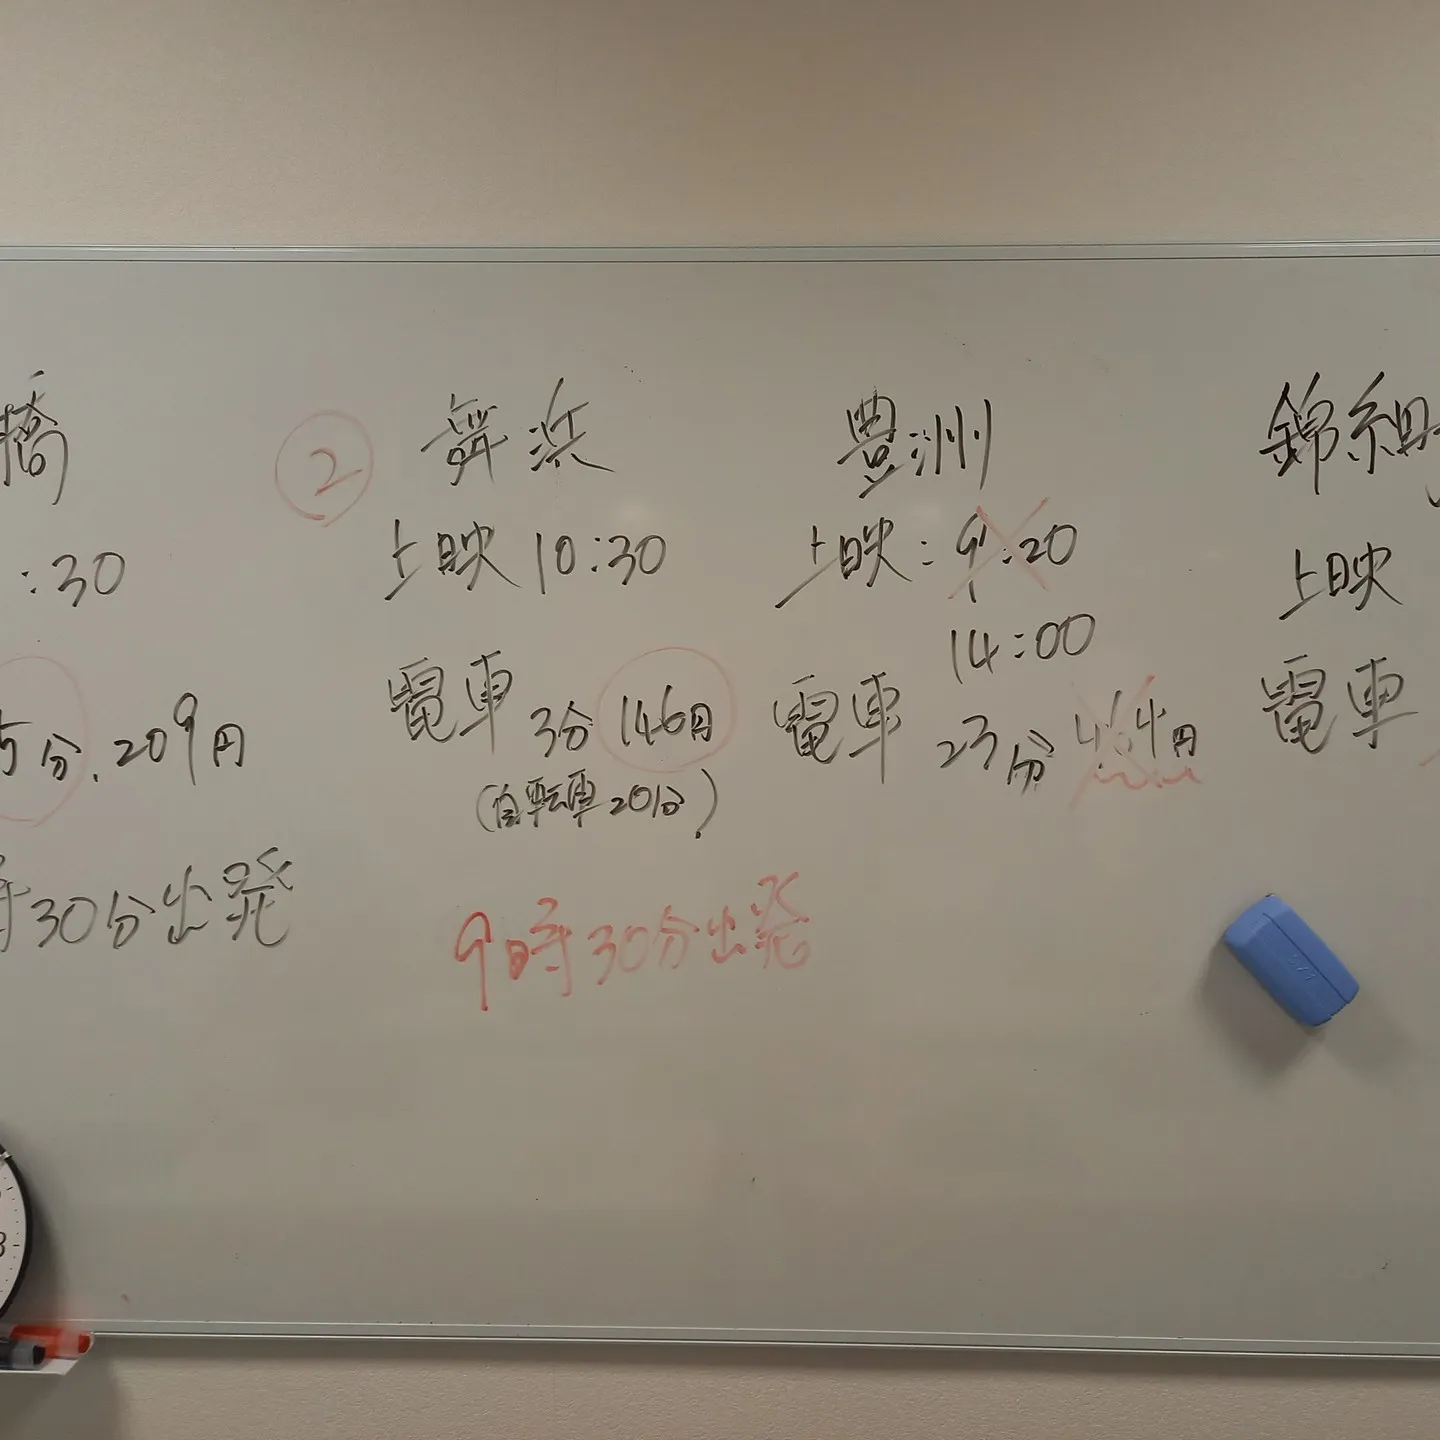 橋
:30
5分、209円
時30分出発
②
舞浜
上映 10:30
電車 3分 146円
(自転車20分)
9時30分出発
豊洲
上映: 9:20
14:00
電車 23分 464円
錦糸町
上映
電車